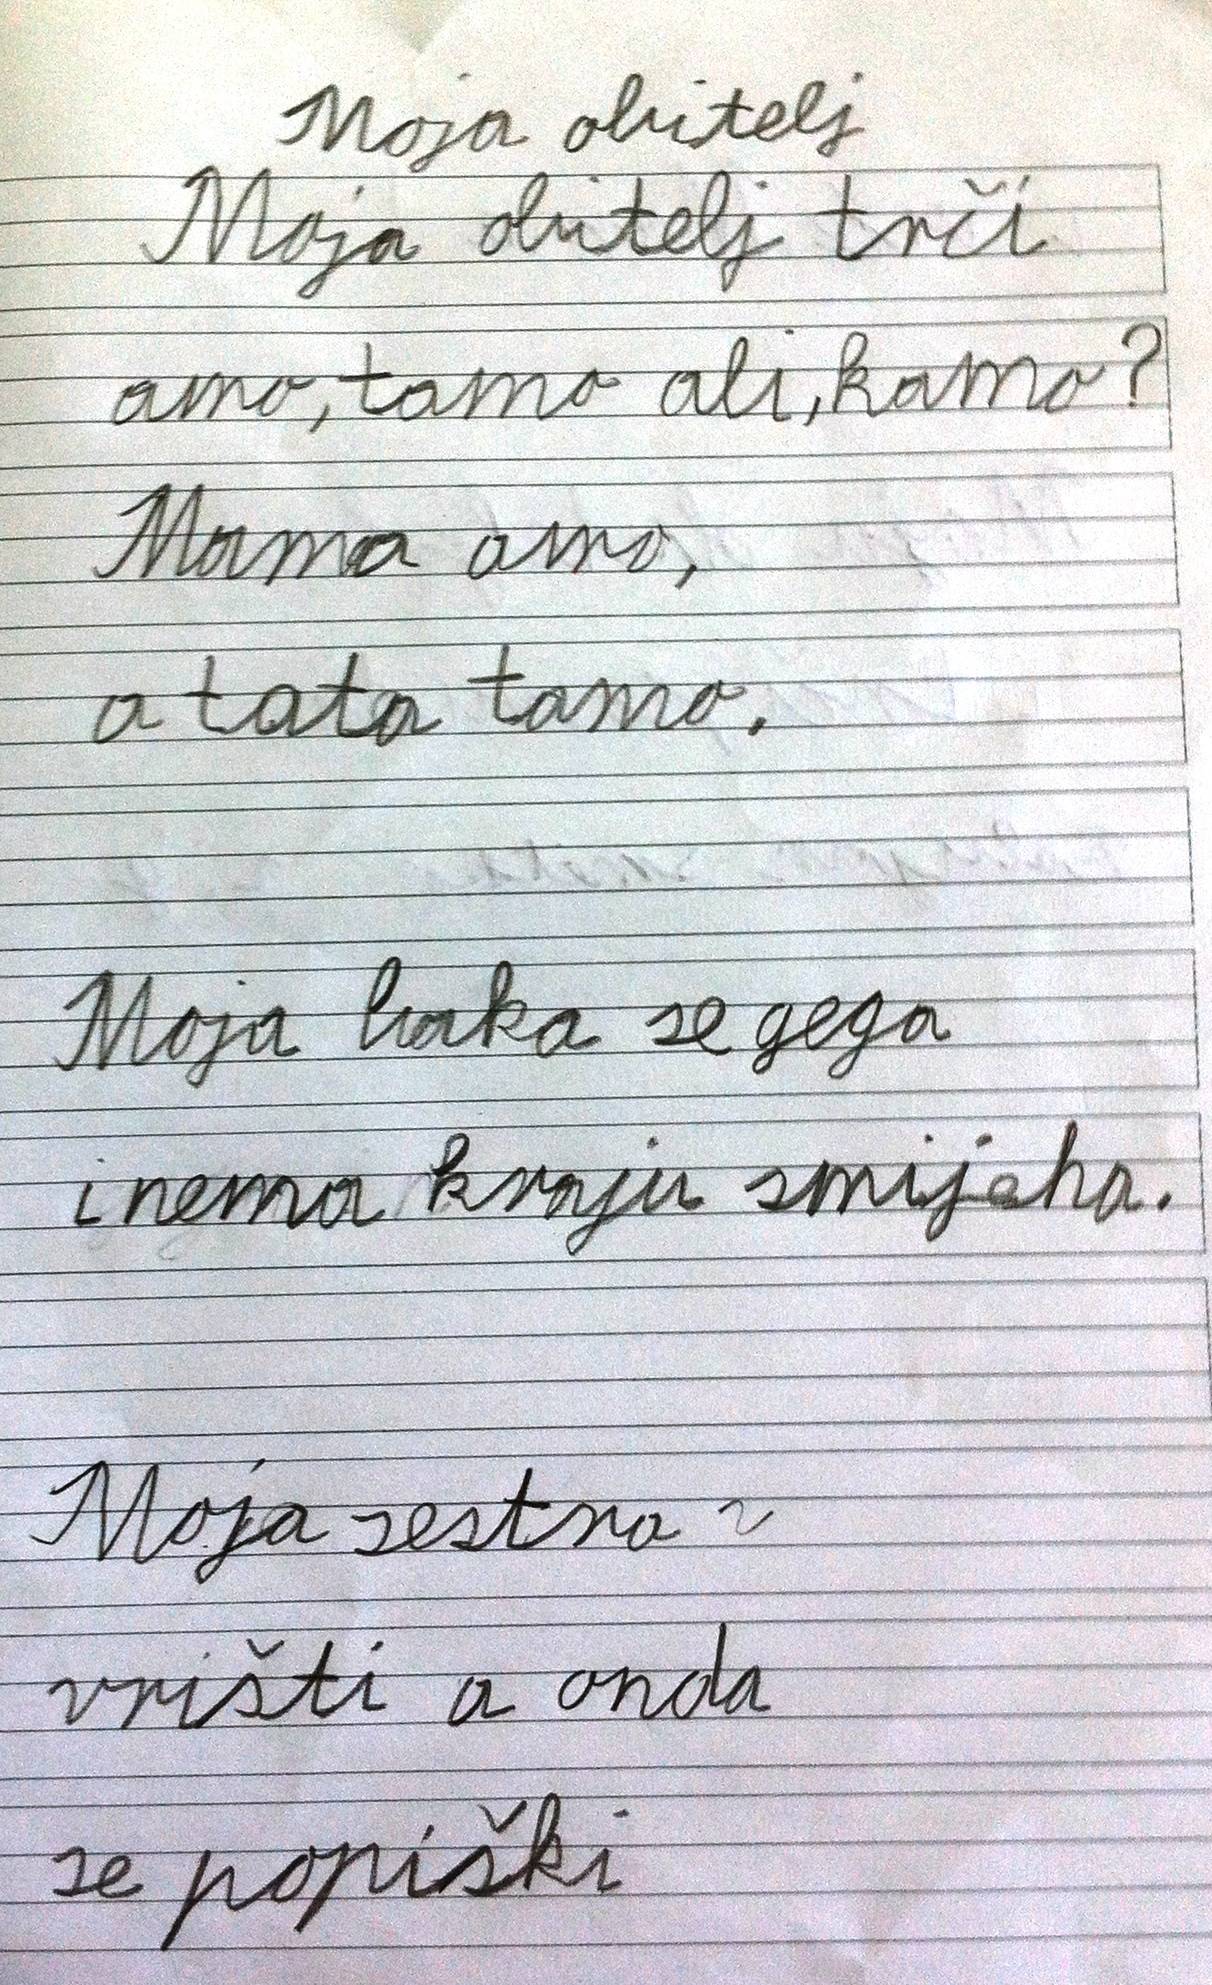 Moja obitelj
Moja obitelj trči
amo, tamo ali, kamo?
Mama amo,
a tata tamo.
Moja baka se gega
i nema kraju smijeha.
Moja sestra
vrišti a onda
se popiški